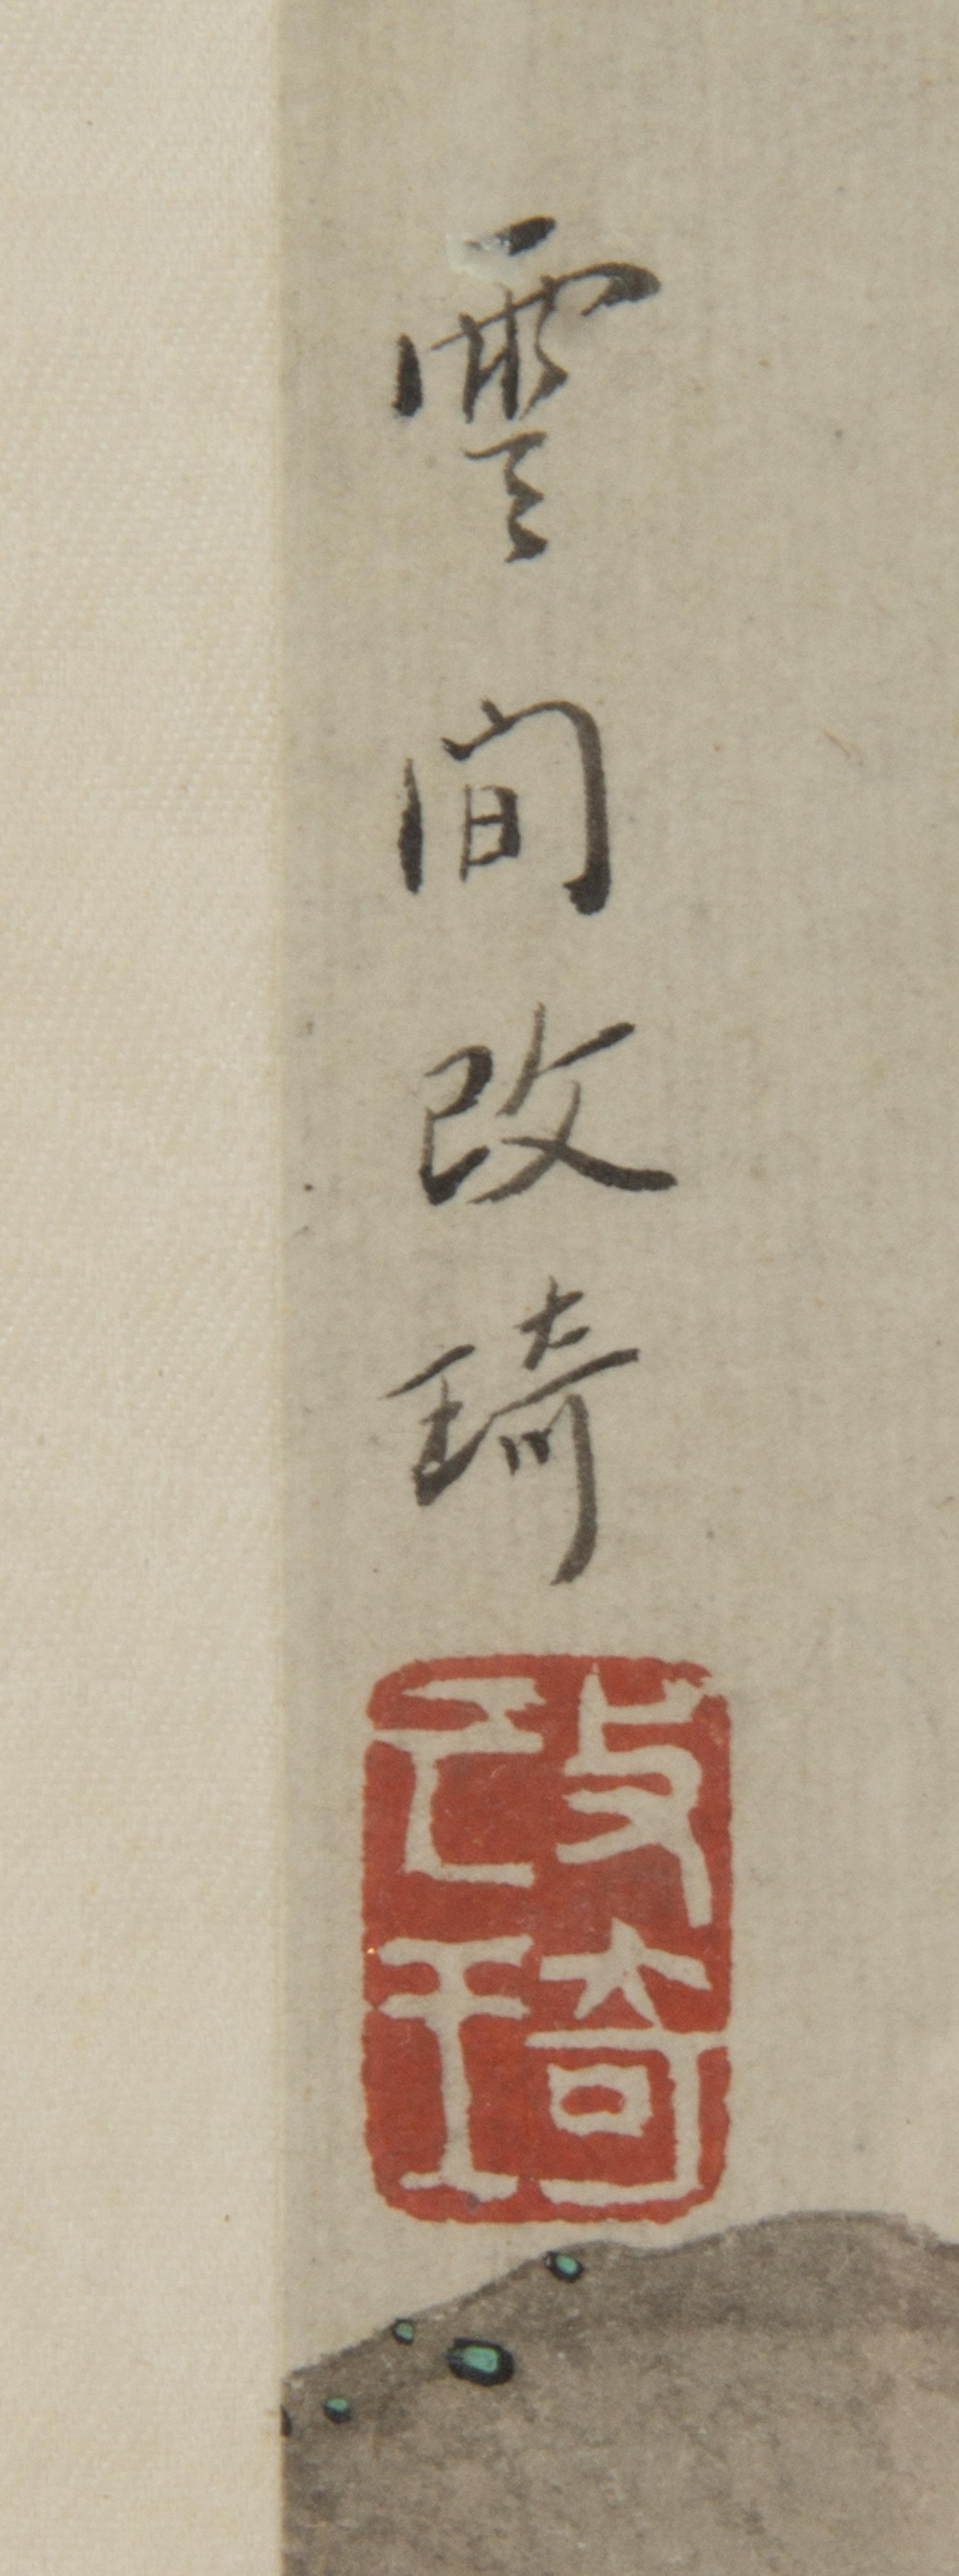 雲間改琦
改琦